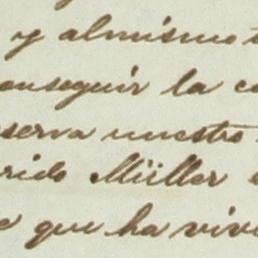 y almismo t
onseguir la co
serva nuestro
rido Müller
e que ha vivi